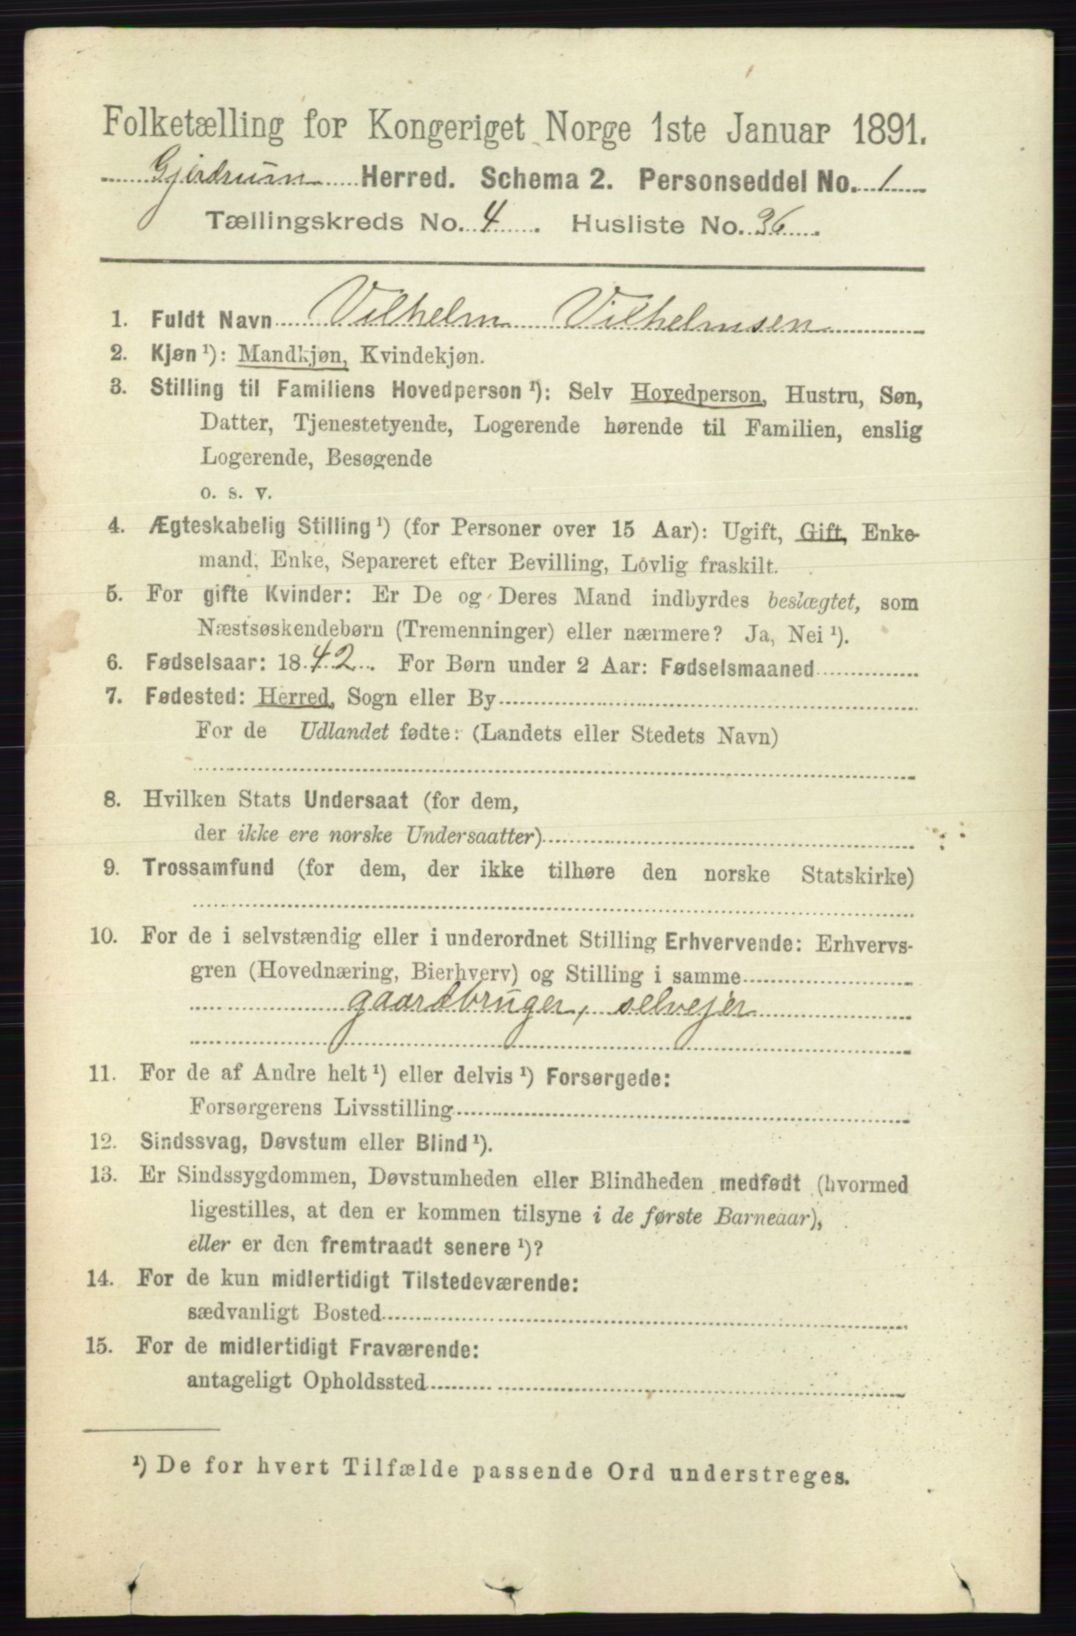 Folketælling for Kongeriget Norge 1ste Januar 1891.
Gjerdrum Herred. Schema 2. Personseddel No. 1
Tællingskreds No. 4. Husliste No. 36.
1. Fuldt Navn Vilhelm Vilhelmsen
2. Kjøn ¹): Mandkjøn, Kvindekjøn.
3. Stilling til Familiens Hovedperson ¹): Selv Hovedperson, Hustru, Søn,
Datter, Tjenestetyende, Logerende hørende til Familien, enslig
Logerende, Besøgende
o. s. v.
4. Ægteskabelig Stilling ¹) (for Personer over 15 Aar): Ugift, Gift, Enke-
mand, Enke, Separeret efter Bevilling, Lovlig fraskilt.
5. For gifte Kvinder: Er De og Deres Mand indbyrdes beslægtet, som
Næstsøskendebørn (Tremenninger) eller nærmere? Ja, Nei ¹).
6. Fødselsaar: 1842. For Børn under 2 Aar: Fødselsmaaned
7. Fødested: Herred, Sogn eller By
For de Udlandet fødte: (Landets eller Stedets Navn)
8. Hvilken Stats Undersaat (for dem,
der ikke ere norske Undersaatter)
9. Trossamfund (for dem, der ikke tilhøre den norske Statskirke)
10. For de i selvstændig eller i underordnet Stilling Erhvervende: Erhvervs-
gren (Hovednæring, Bierhverv) og Stilling i samme
gaardbruger, selvejer
11. For de af Andre helt ¹) eller delvis ¹) Forsørgede:
Forsørgerens Livsstilling
12. Sindssvag, Døvstum eller Blind ¹).
13. Er Sindssygdommen, Døvstumheden eller Blindheden medfødt (hvormed
ligestilles, at den er kommen tilsyne i de første Barneaar),
eller er den fremtraadt senere ¹)?
14. For de kun midlertidigt Tilstedeværende:
sædvanligt Bosted
15. For de midlertidigt Fraværende:
antageligt Opholdssted
¹) De for hvert Tilfælde passende Ord understreges.